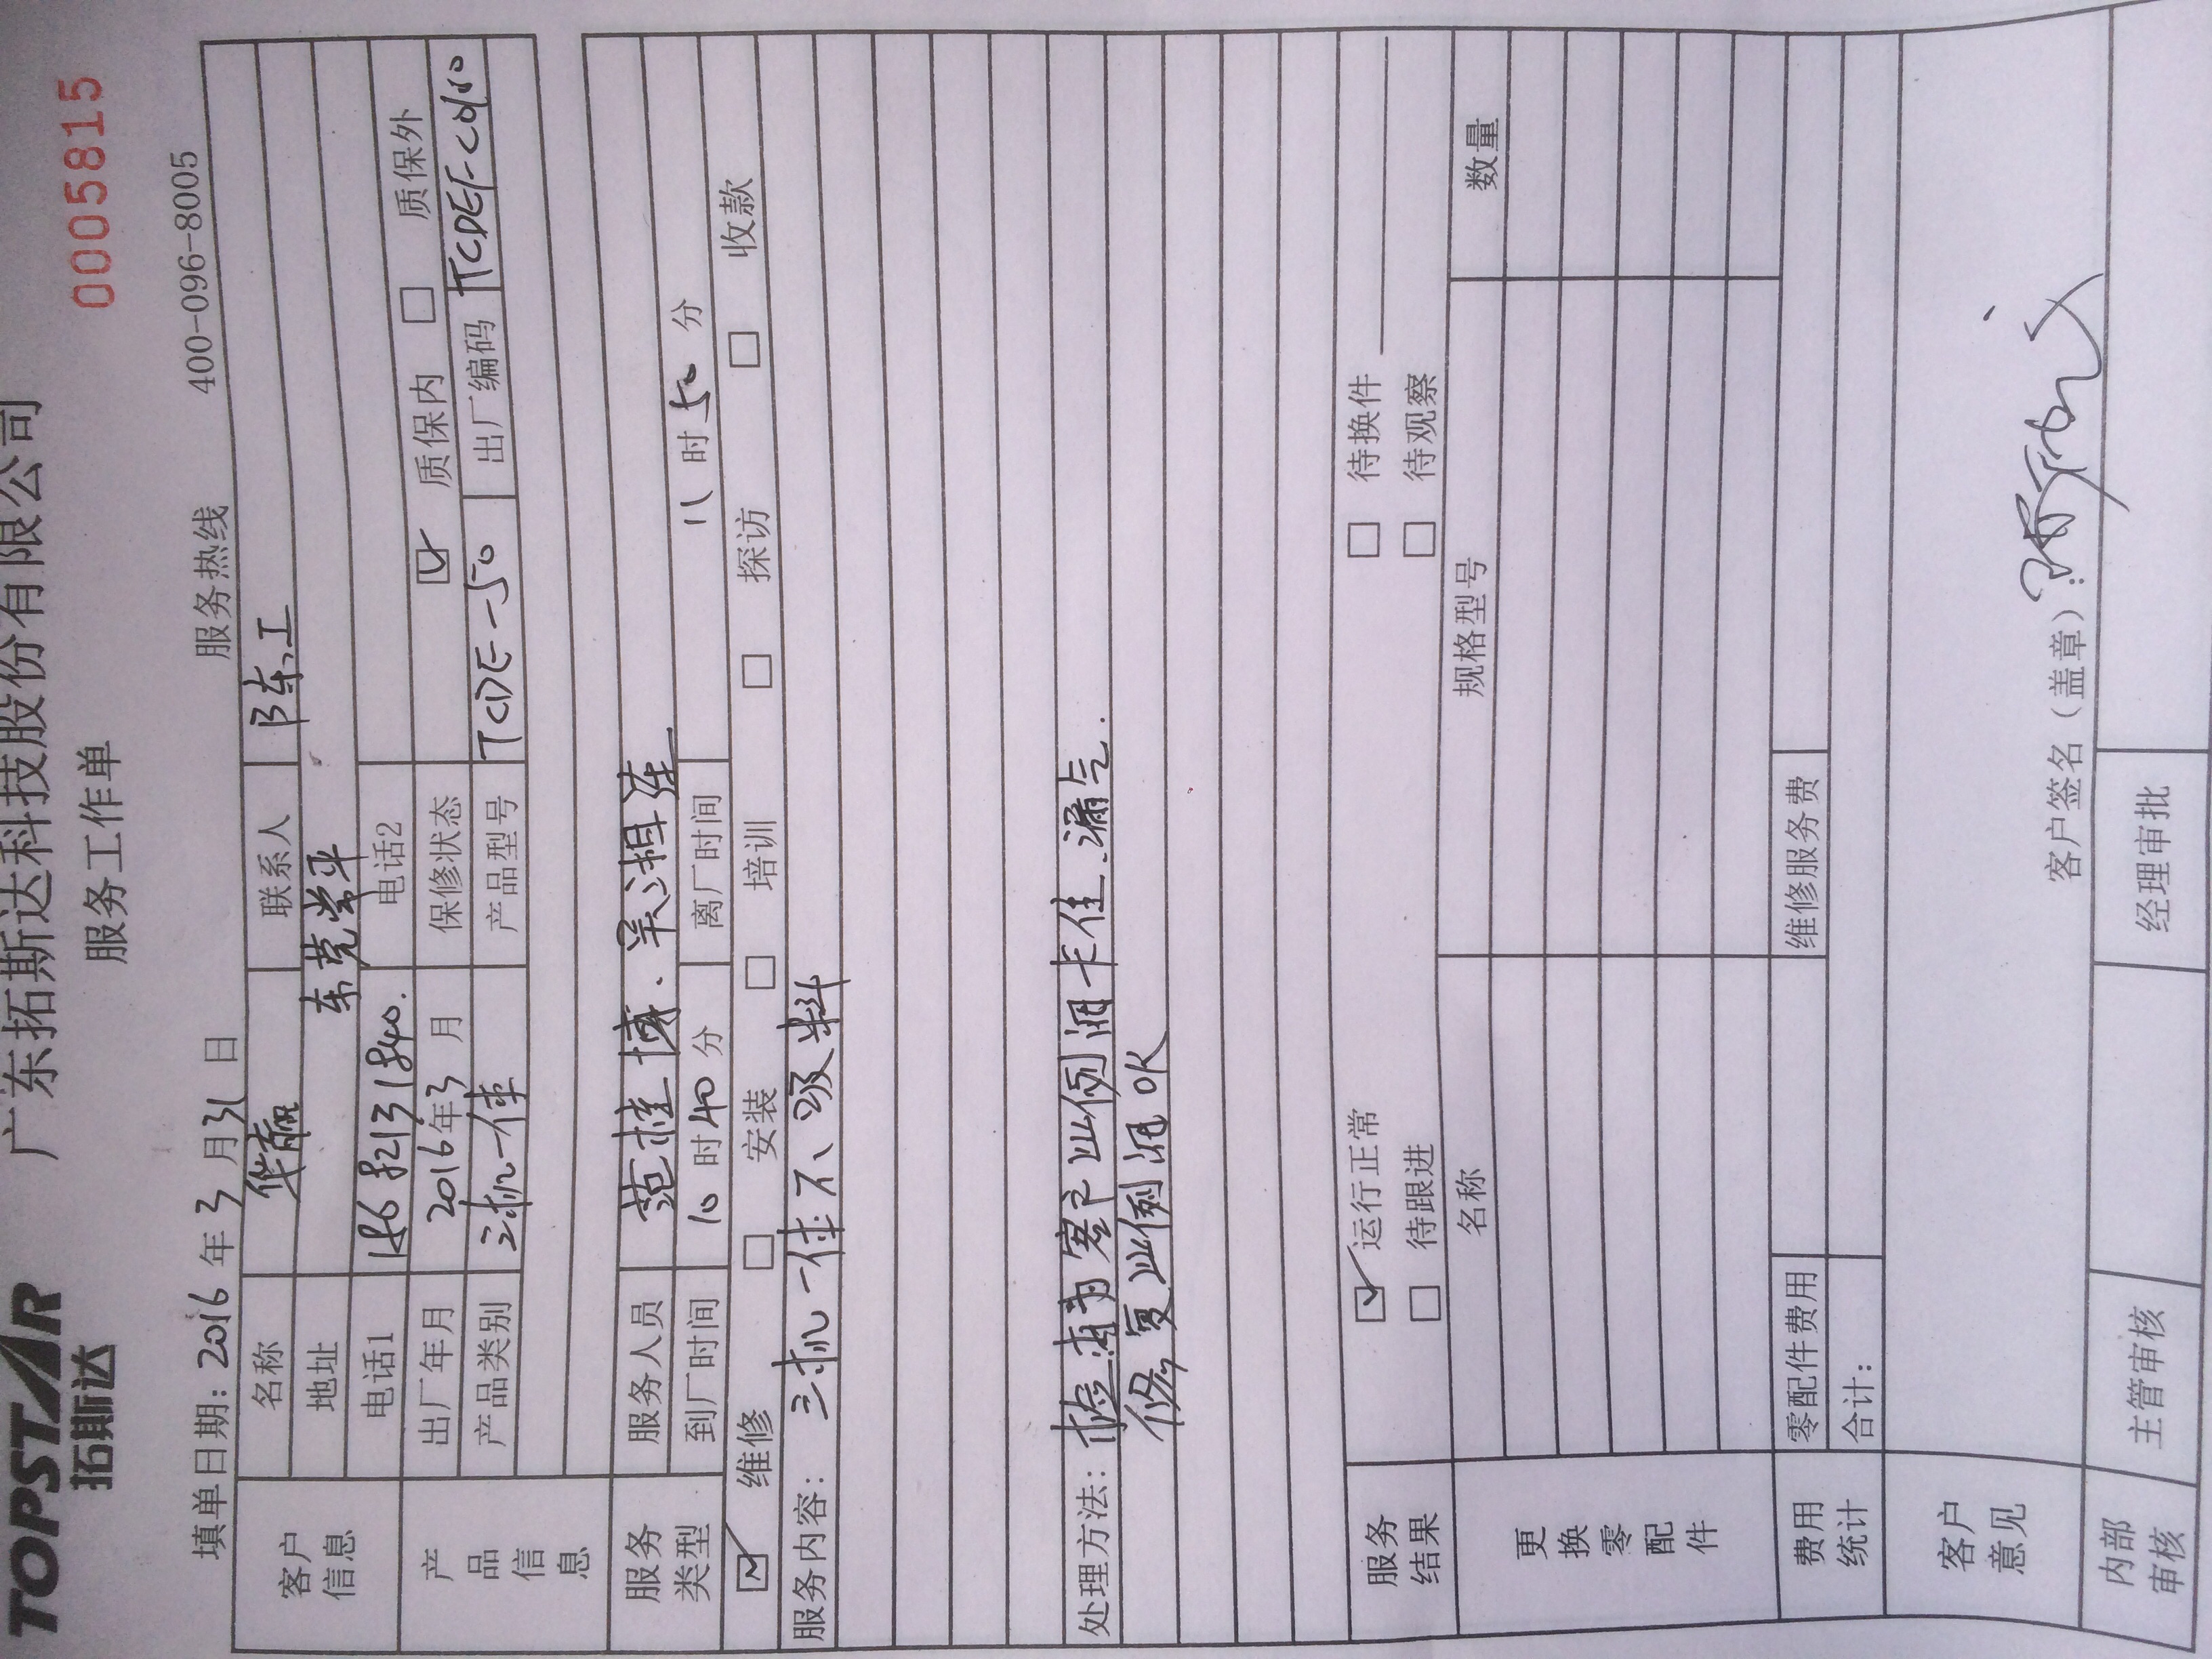 TOPSTAR
拓斯达
广东拓斯达科技股份有限公司
服务工作单
0005815
填单日期: 2016 年 3 月 31 日 服务热线 400-096-8005
客户信息
名称 华赢 联系人 陈工
地址 东莞常平
电话1 18682131840. 电话2
产品信息
出厂年月 2016年3月 保修状态 ☑ 质保内 □ 质保外
产品类别 三机一体 产品型号 TCDE-50 出厂编码
服务类型
服务人员 范桂 . 吴湘连
到厂时间 10 时 40 分 离厂时间 11 时 50 分
☑ 维修 □ 安装 □ 培训 □ 探访 □ 收款
服务内容: 三机一体不吸料
处理方法: 比例阀卡住.漏气.
修复比例阀OK
服务结果
☑ 运行正常 □ 待换件
□ 待跟进 □ 待观察
更换零配件
名称 规格型号 数量
费用统计
零配件费用 维修服务费
合计:
客户意见
客户签名(盖章):
内部审核 主管审核 经理审批